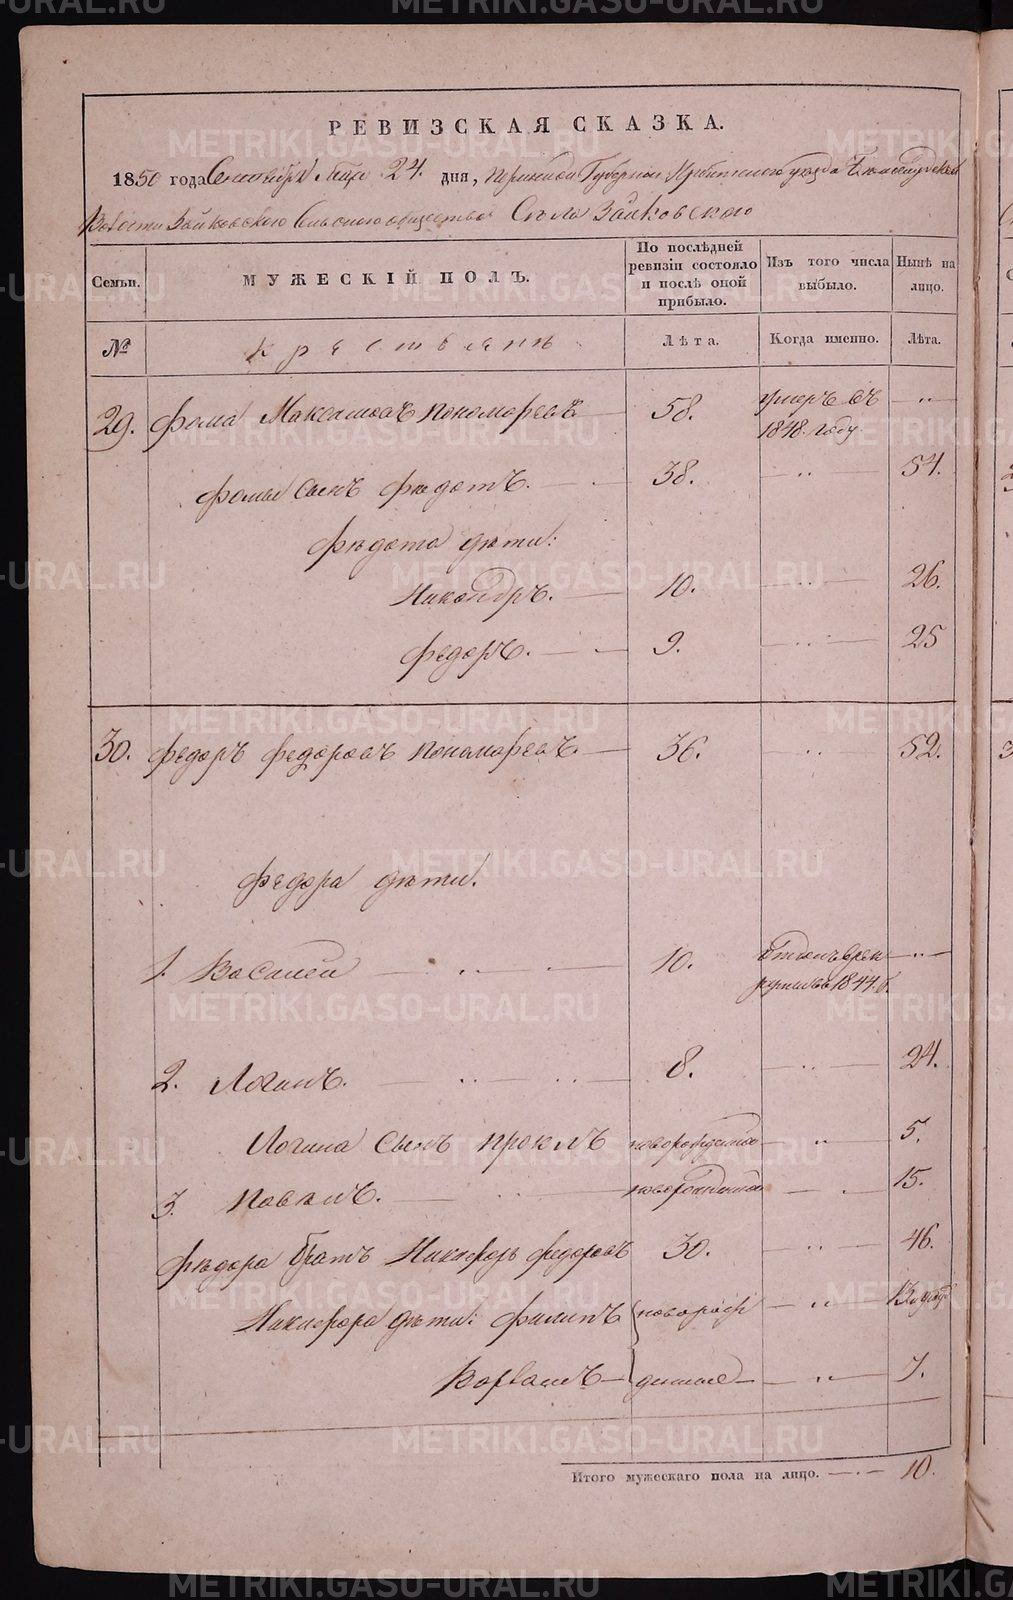 РЕВИЗСКАЯ СКАЗКА.
1850 года Сентября м-ца 24. дня, Пермской Губернии Ирбитского уезда
Волости Зайковского Сельского общества Села Зайковского
Семьи.
МУЖЕСКІЙ ПОЛЪ.
По послѣдней ревизіи состояло и послѣ оной прибыло.
Изъ того числа выбыло.
Нынѣ на лицо.
№
Крестьянъ
Лѣта.
Когда именно.
Лѣта.
29. Фома Максимовъ Пономаревъ 58. умеръ въ 1848. году.
Фомы сынъ Федотъ. 38. 54.
Федота дѣти:
Никандръ. 10. 26.
Федоръ. 9. 25
30. Федоръ Федоровъ Пономаревъ. 36. 52.
Федора дѣти.
1. Василей 10. 1844. г.
2. Логинъ. 8. 24.
Логина сынъ Проклъ новорожденной 5.
3. Павелъ. новорожденной 15.
Федора братъ Никифоръ Федоровъ 30. 46.
Никифора дѣти: Филипъ новорож
денные 7.
Итого мужескаго пола на лицо. 10.
METRIKI.GASO-URAL.RU